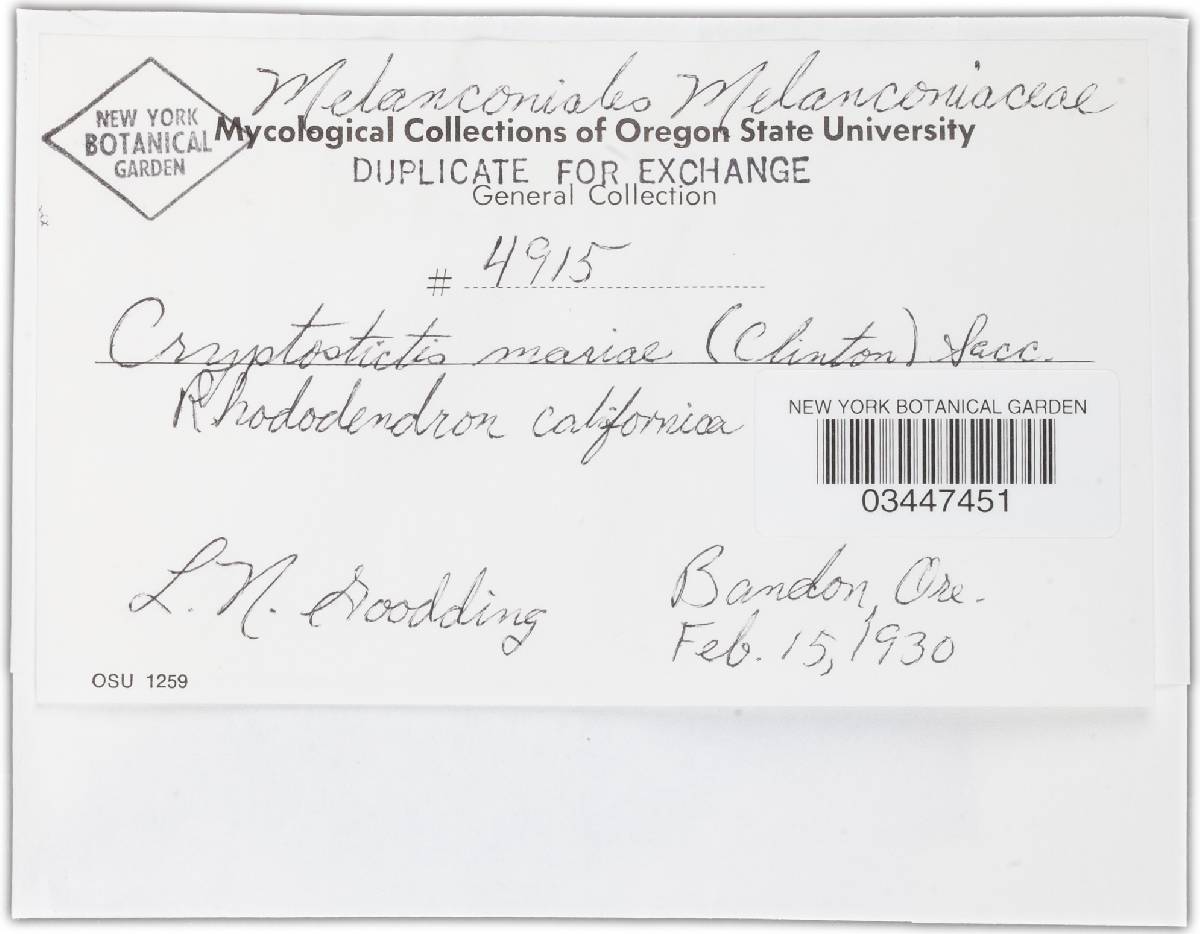 Melanconiales Melanconiaceae
NEW YORK
BOTANICAL
GARDEN
Mycological Collections of Oregon State University
DUPLICATE FOR EXCHANGE
General Collection
# 4915
Cryptostictis mariae (Clinton) Sacc.
Rhododendron californica
NEW YORK BOTANICAL GARDEN
03447451
L. N. Goodding
Bandon, Ore.
Feb. 15, 1930
OSU 1259